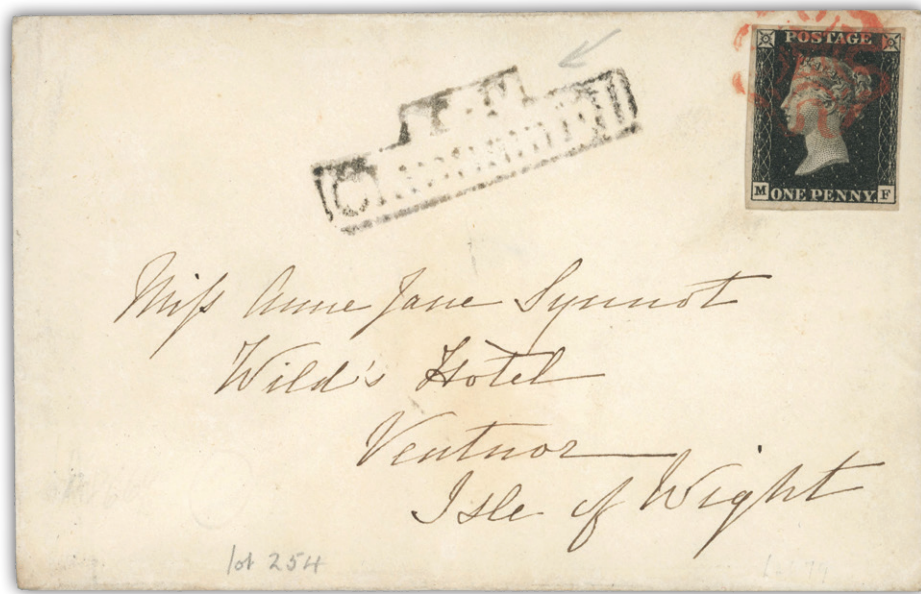 POSTAGE
M ONE PENNY F
Miss Anne Jane Synnot
Wild's Hotel
Ventnor
Isle of Wight
lot 254